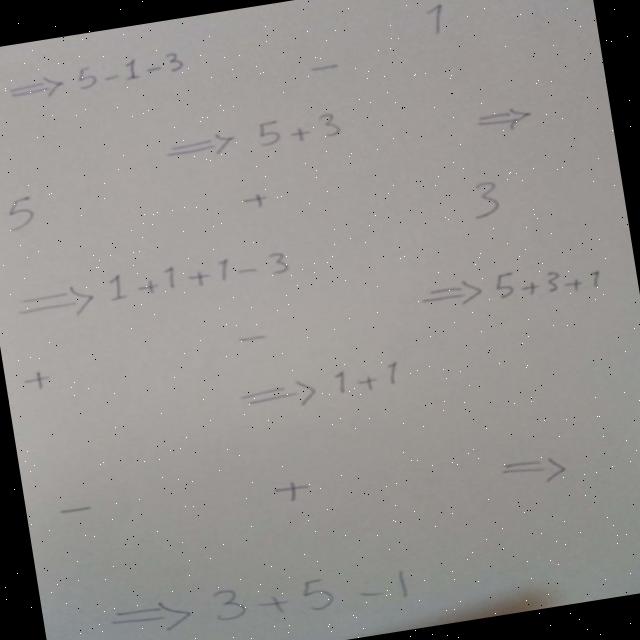 ⇒ 5-1-3 - 1
⇒ 5+3 ⇒
5 + 3
⇒ 1+1+1-3 ⇒ 5+3+1
-
+ ⇒ 1+1
- + ⇒
⇒ 3+5-1